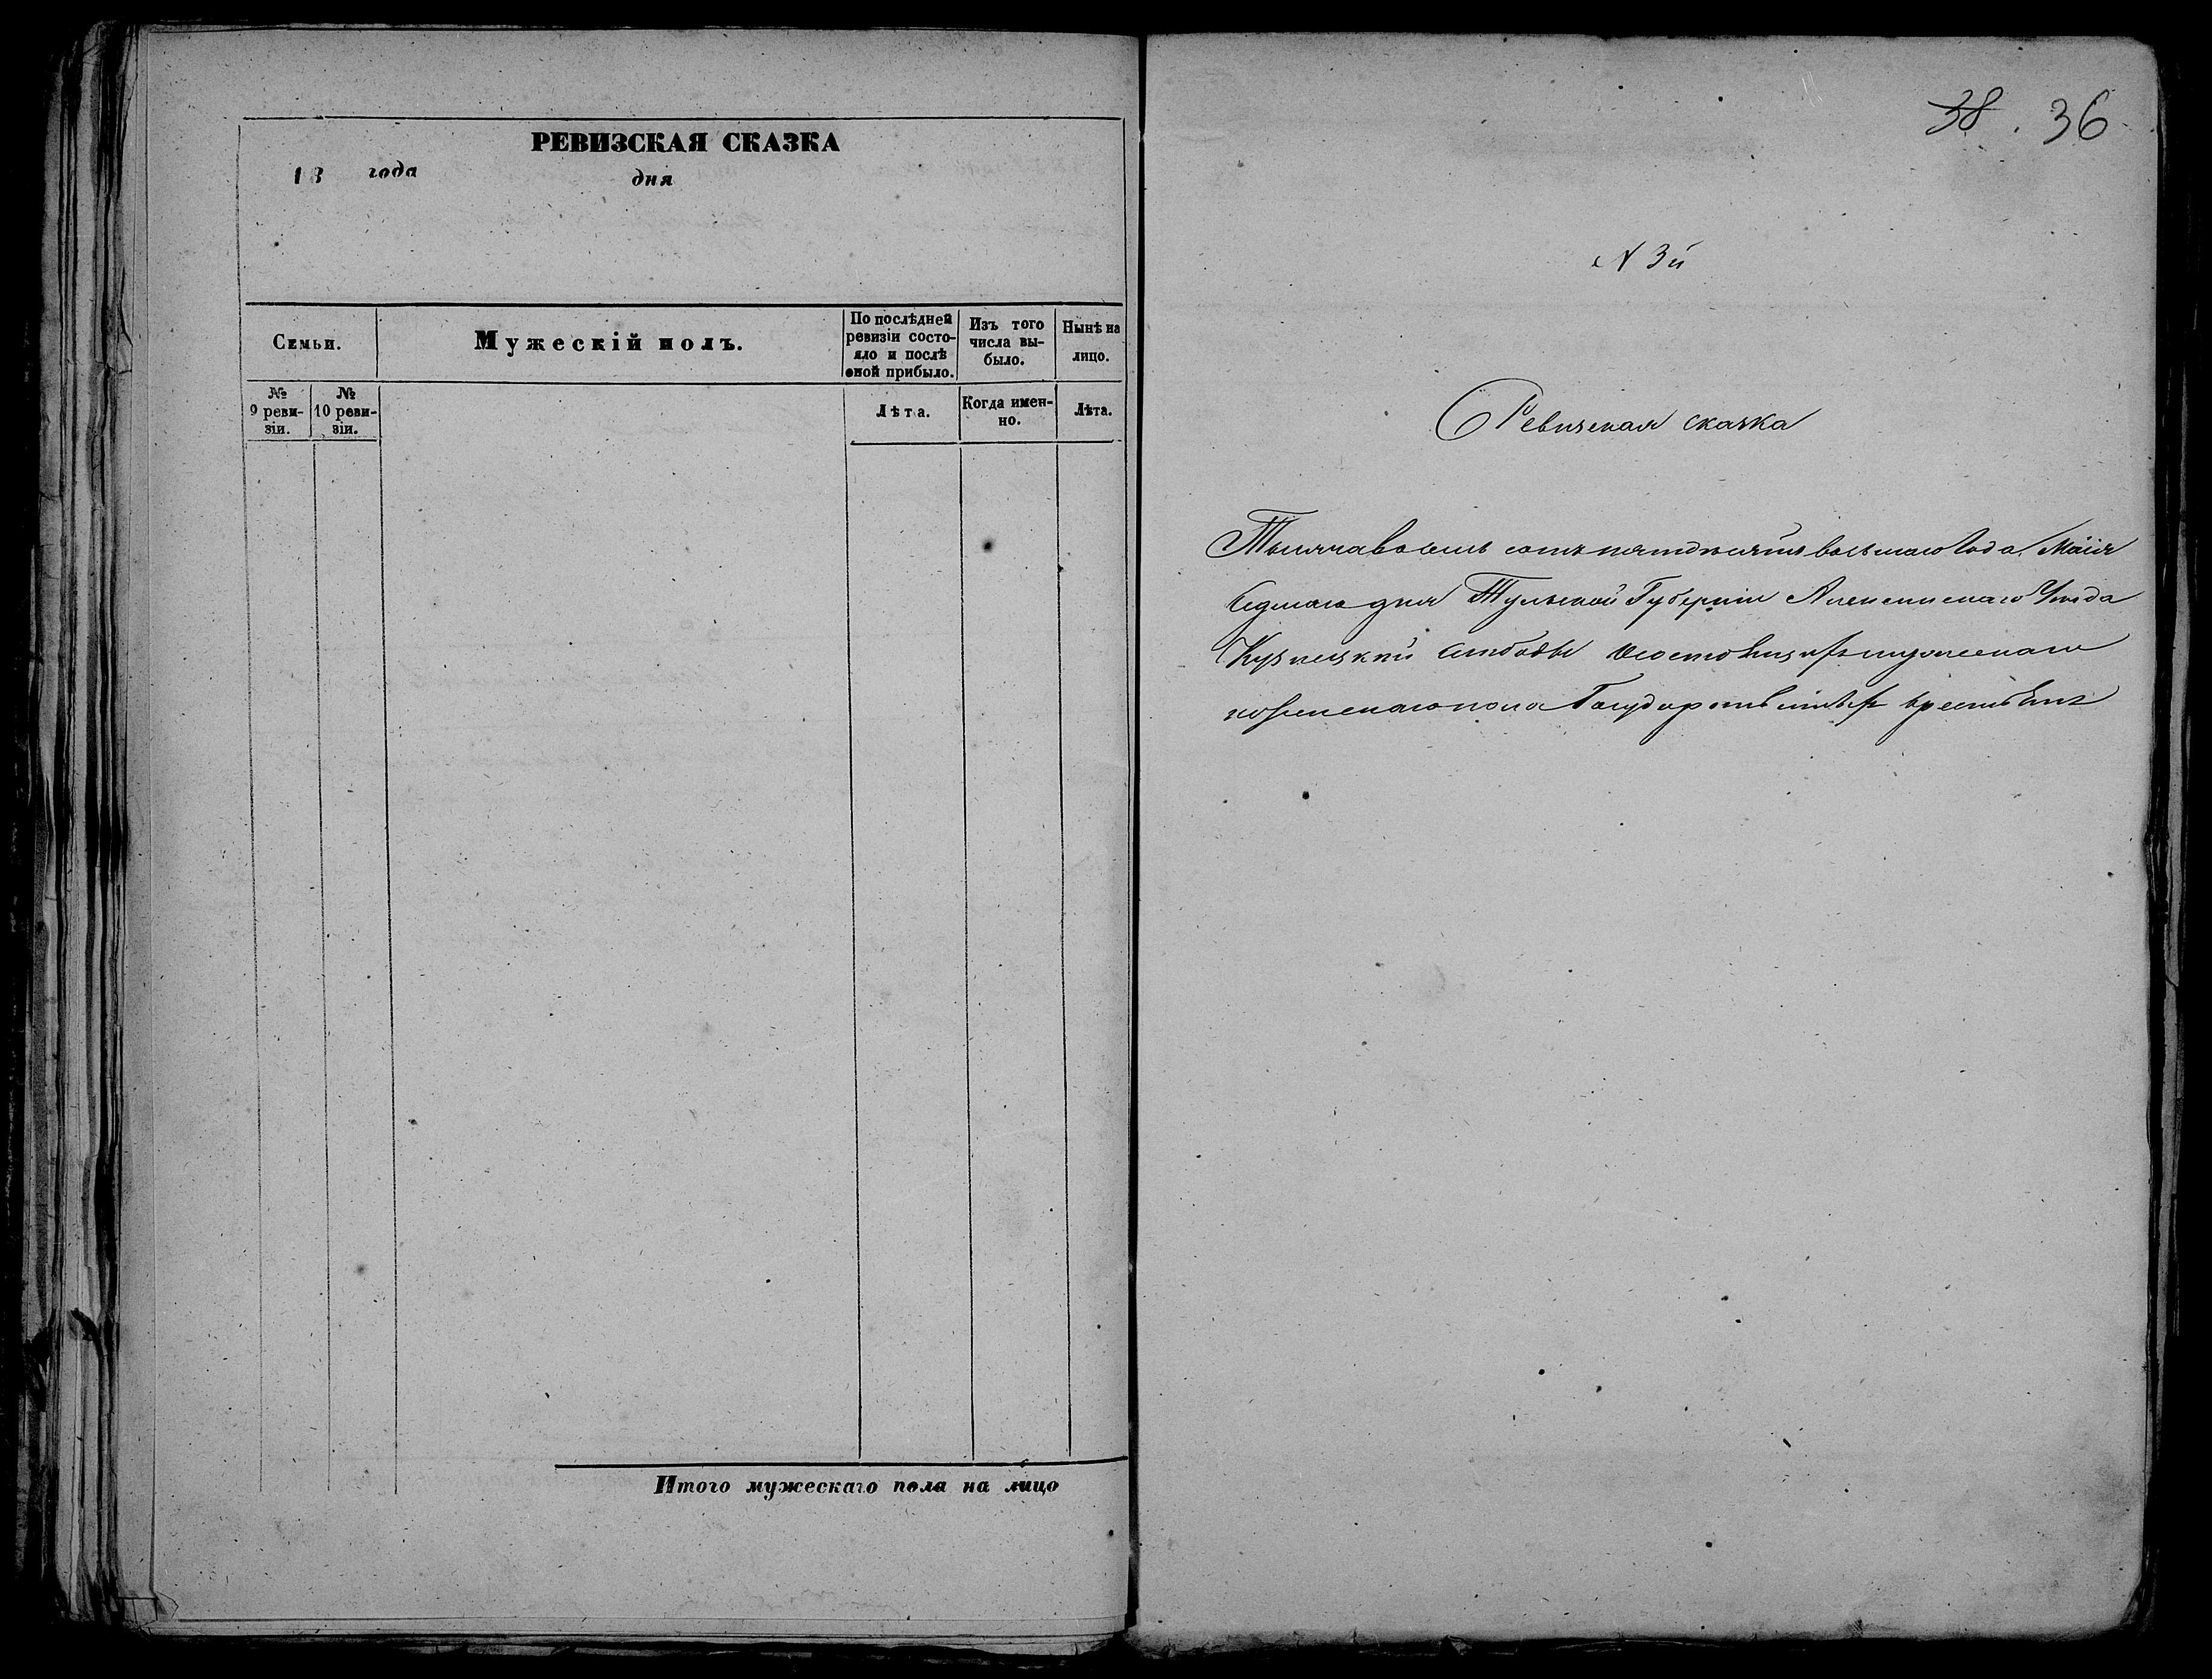 РЕВИЗСКАЯ СКАЗКА
18 года дня
Семьи.
Мужескій полъ.
По послѣдней ревизіи состо-
яло и послѣ оной прибыло.
Изъ того числа вы-
было.
Нынѣ на лицо.
№ 9 реви-
зіи.
№ 10 реви-
зіи.
Лѣта.
Когда имен-
но.
Лѣта.
Итого мужескаго пола на лицо
38. 36
N 3й
Ревизская сказка
Тысяча восемь сотъ пятдесятъ восьмаго Года Маія
Седмаго дня Тульской Губерніи Алексинскаго Уѣзда
Кузнецкой Слободы о состоящихъ мужескаго
и женскаго пола Государственныхъ крестьянъ